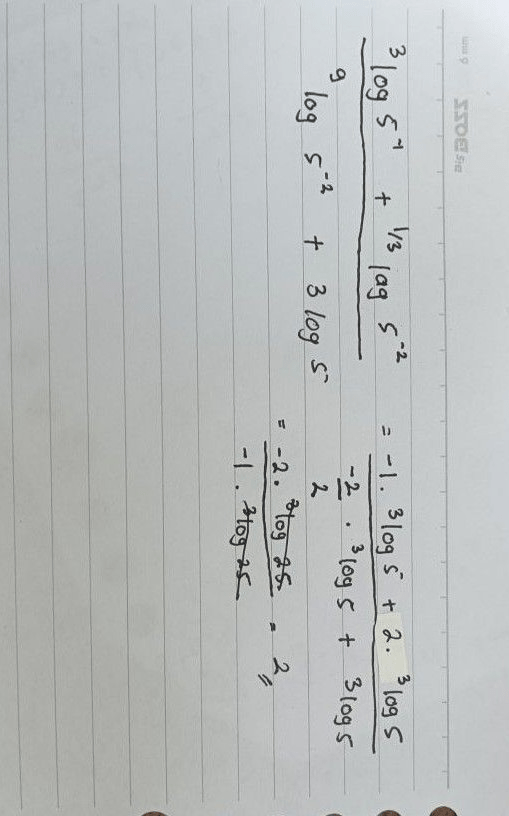 ³log 5⁻¹ + ¹/³lag 5⁻² = -1 . ³log 5 + 2. ³log 5
⁹log 5⁻² + 3 log 5 -2/2 . ³log 5 + ³log 5
= -2 . ³log 25 = 2
-1 . ³log 25